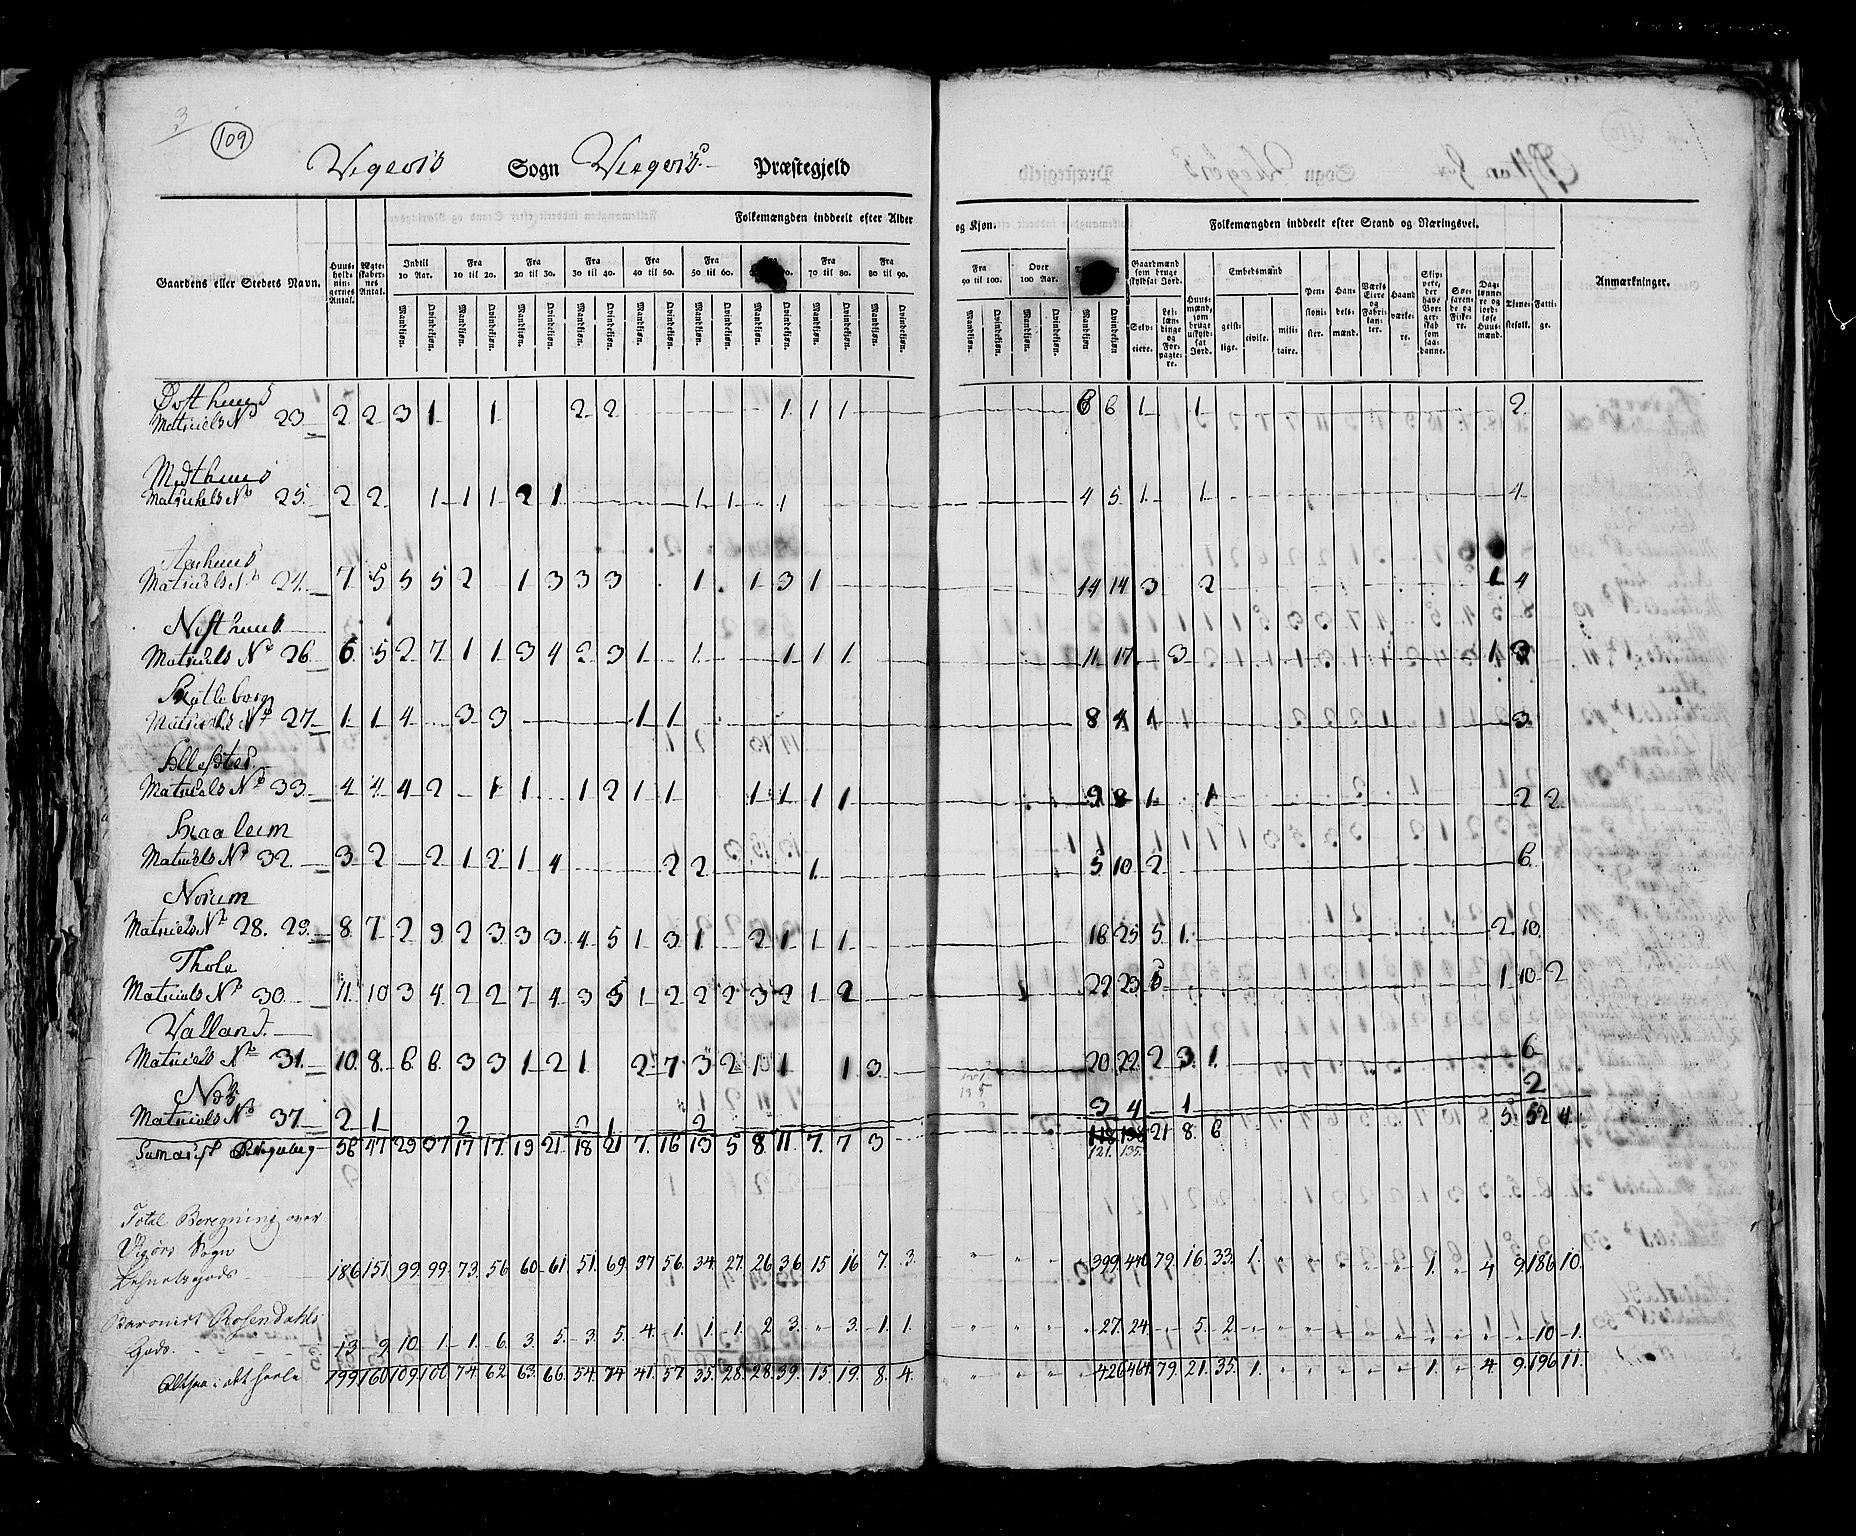 3
109
Vigøris Sogn Viigøris Præstegjeld
Gaardens eller Stedets Navn.
Huus-hold-nin-gernes Antal.
Ægte-skaber-nes Antal.
Folkemængden inddeelt efter Alder og Kjøn.
Indtil 10 Aar.
Fra 10 til 20.
Fra 20 til 30.
Fra 30 til 40.
Fra 40 til 50.
Fra 50 til 60.
Fra 70 til 80.
Fra 80 til 90.
Fra 90 til 100.
Over 100 Aar.
Mandkjøn. Qvindekjøn.
Folkemængden inddeelt efter Stand og Næringsvei.
Gaardmænd som bruge skyldsat Jord.
Selv-eiere.
Lei-læn-dinge og For-pagte-re.
Huus-mænd, som bruge uskyld-sat Jord.
Embedsmænd
geist-lige. civile. mili-taire.
Pen-sioni-ster.
Han-dels-mænd.
Værks Eiere og Fabri-kan-ter.
Haand værke-re.
Skip-pere, der have Bor-ger-skab som saa-danne.
Søe-farende og Fiske-re.
Dag-lønne-re og jord-løse Huus-mænd.
Tiene-stefolk.
Fatti-ge.
Anmærkninger.
Østhuus
Matriculs No 23. 2 2 3 1 1 2 2 1 1 1 6 6 1 1 2
Midthuus
Matrickels No 25. 2 2 1 1 1 2 1 1 1 1 4 5 1 1 4
Aarhuus
Matriculs No 24. 7 5 5 5 2 1 3 3 3 1 1 3 1 14 14 3 2 1 4
Nisthuus
Matriculs No 26. 6 5 2 7 1 1 3 4 2 3 1 1 1 1 1 11 17 3 1 3
Matriculs No 27. 1 1 4 3 3 1 1 8 4 1 3
Matriculs No 33. 4 4 4 2 1 1 1 2 1 1 1 1 1 1 9 8 1 1 2 2
Matriculs No 32 3 2 2 1 2 1 4 2 2 1 5 10 2 6
Norum
Matriculs No 28. 29. 8 7 2 9 2 3 3 3 4 5 1 3 1 2 1 1 1 18 25 5 1 2 10
Thole
Matriculs No 30 11 10 3 4 2 2 7 4 3 5 1 2 2 2 3 2 1 2 22 23 6 1 10 2
Valland.
Matriculs No 31. 10 8 6 6 3 3 1 2 1 2 7 3 2 1 1 1 3 20 22 2 3 1 6
Matriculs No 37. 2 1 2 2 1 2 3 4 1 2
56 47 29 37 17 17 19 21 18 21 7 16 13 5 8 11 7 7 3 118 21 8 6 5 52 4
121. 135.
Total Beregning over
Vigørs Sogn
186 151 99 99 73 56 60 61 51 69 37 56 34 27 26 36 15 16 7 3 399 440 79 16 33 1 1 4 9 186 10
Baroniet Rosendahls
Gods. 13 9 10 1 1 6 3 5 3 5 4 1 1 1 2 3 3 1 1 27 24 5 2 10 1
Altsaa i det heele 199 160 109 100 74 62 63 66 54 74 41 57 35 28 28 39 15 19 8 4 426 464 79 21 35 1 1 4 9 196 11